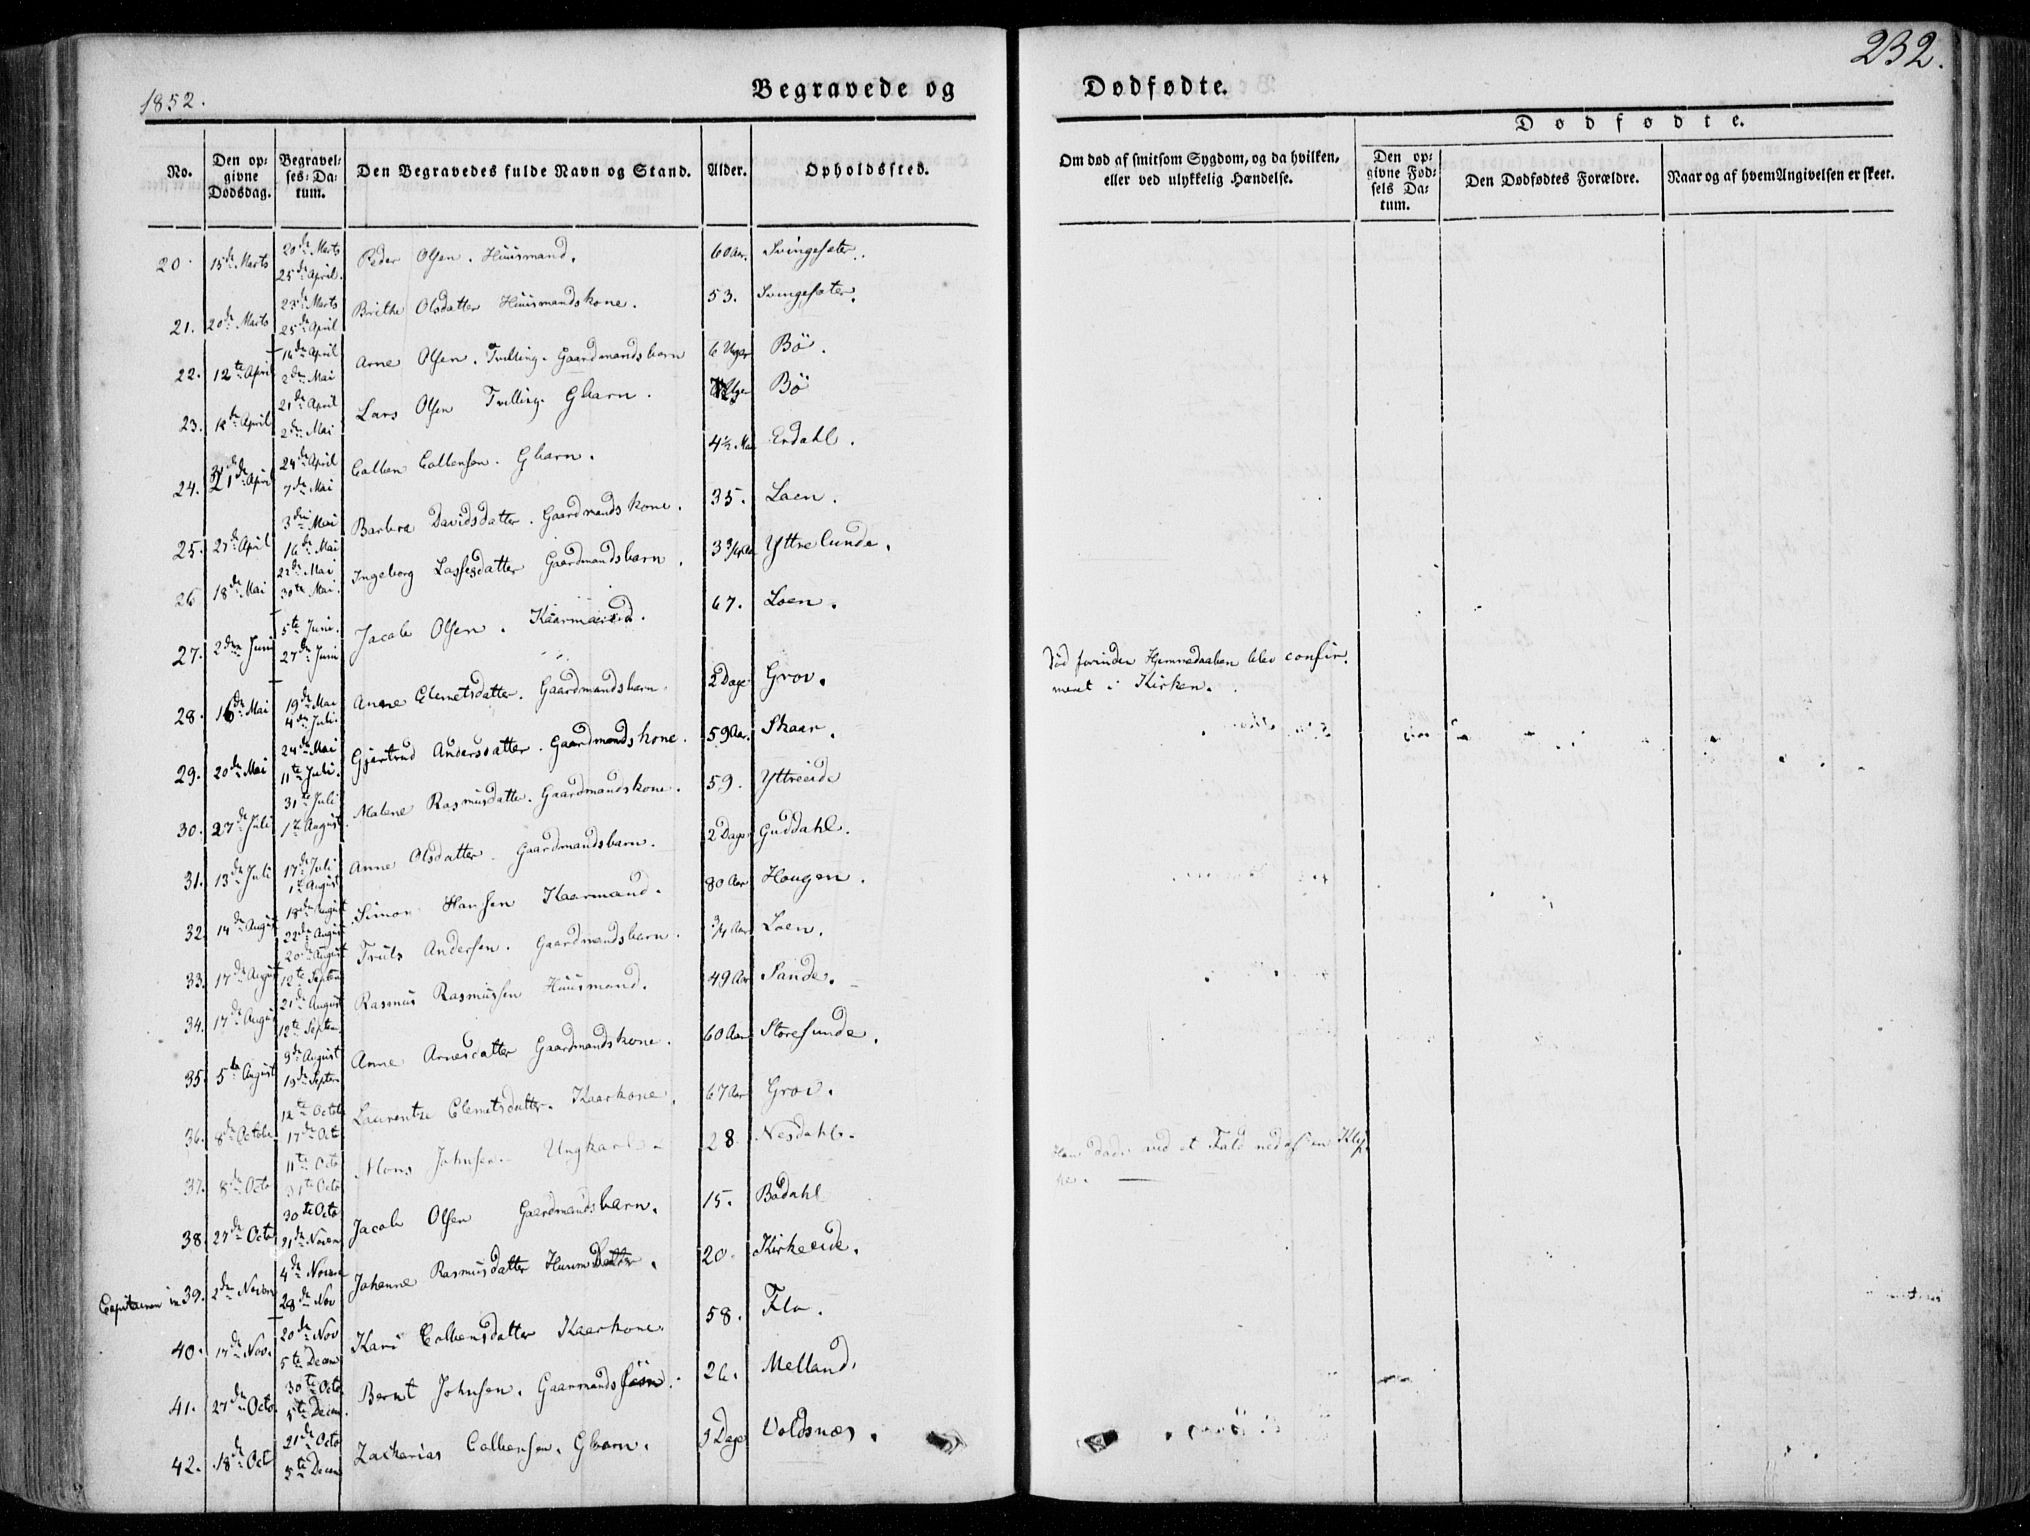 232.
1852.
Begravede og
Dødfødte.
No.
Den op-
givne
Dødsdag.
Begravel-
ses-Da-
tum.
Den Begravedes fulde Navn og Stand.
Alder.
Opholdssted.
Om død af smitsom Sygdom, og da hvilken,
eller ved ulykkelig Hændelse.
Dødfødte.
Den op-
givne Fød-
sels Da-
tum.
Den Dødfødtes Forældre.
Naar og af hvem Angivelsen er skeet.
20. 15de Marts 20de Marts 25de April. Peder Olsen. Huusmand. 60 Aar. Svingesæter.
21. 20de Marts 23de Marts 25de April Brithe Olsdatter Huusmandskone. 53. Svingesæter.
22. 12te April 16de April 2den Mai Arne Olsen. Tvilling. Gaardmandsbarn 6 Uger Bö.
23. 12te April 21de April 2den Mai Lars Olsen Tvilling. Gbarn. Uger Bö
24. 21de April 24de April 7de Mai Colben Colbensen. Gbarn. 4½ Erdahl.
25. 27de April 3die Mai 16de Mai Barbera Davidsdatter. Gaardmandskone. 35. Loen.
26 18de Mai 22de Mai 30te Mai. Ingeborg Lassesdatter Gaardmandsbarn. 3 3/4 Aar Yttrelunde.
27. 2den Juni 5te Juni. 27de Juni Jacob Olsen. Kaarmand. 67. Loen.
28. 16de Mai 19de Mai 4de Juli. Anne Clemetsdatter. Gaardmandsbarn. 2 Dage Grov. Död forinden Hjemmedaaben blev confir-
meret i Kirken.
29. 20de Mai 24de Mai 11te Juli. Gjertrud Andersdatter. Gaardmandskone. 59 Aar. Skaar.
30. 27de Juli 31te Juli 1te August. Malene Rasmusdatter. Gaardmandskone. 59. Yttreeide
31. 13de Juli 17de Juli 1te August Anne Olsdatter. Gaardmandsbarn. 2 Dage Guddahl.
32. 14de August 18de August 22de August Simon Hansen Kaarmand. 80 Aar Hougen.
33. 17de August 20de August 12te Septem Truls Andersen. Gaardmandsbarn. 3/4 Aar Loen.
34. 17de August 21de August 12te Septem. Rasmus Rasmussen Huusmand. 49 Aar Sande.
35. 5te August 9de August 19de Septem Anne Arnesdatter Gaardmandskone. 60 Aar Storesunde.
36. 8de Octobr 12te Octob 17de Oct Laurentze Clemetsdatter. Kaarkone. 67 Aar Grov.
37. 8de Octo 11te Octo 31te Octo Mons Johnsen. Ungkarl. 28. Nesdahl. Han døde ved et Fald ned af en Klip-
pe.
38. 27de Octo 30te Octo 21de Novem Jacob Olsen Gaardmandsbarn. 15. Bødahl
39. 2den Novem 4de Novem 28de Nov Johanne Rasmusdatter Huusm Datter. 20. Kirkeeide.
40. 17de Nov. 20de Nov 5te Decem Kari Colbensdatter Kaarkone. 58. Flo.
41. 27de Octo. 30te Octo. 5te Decem. Bernt Johnsen. Gaarmandssön. 26. Melland.
42. 18de Oct 21de Octo 5te Decem Zacharias Colbensen. Gbarn. 3 Dage Voldsnæs.